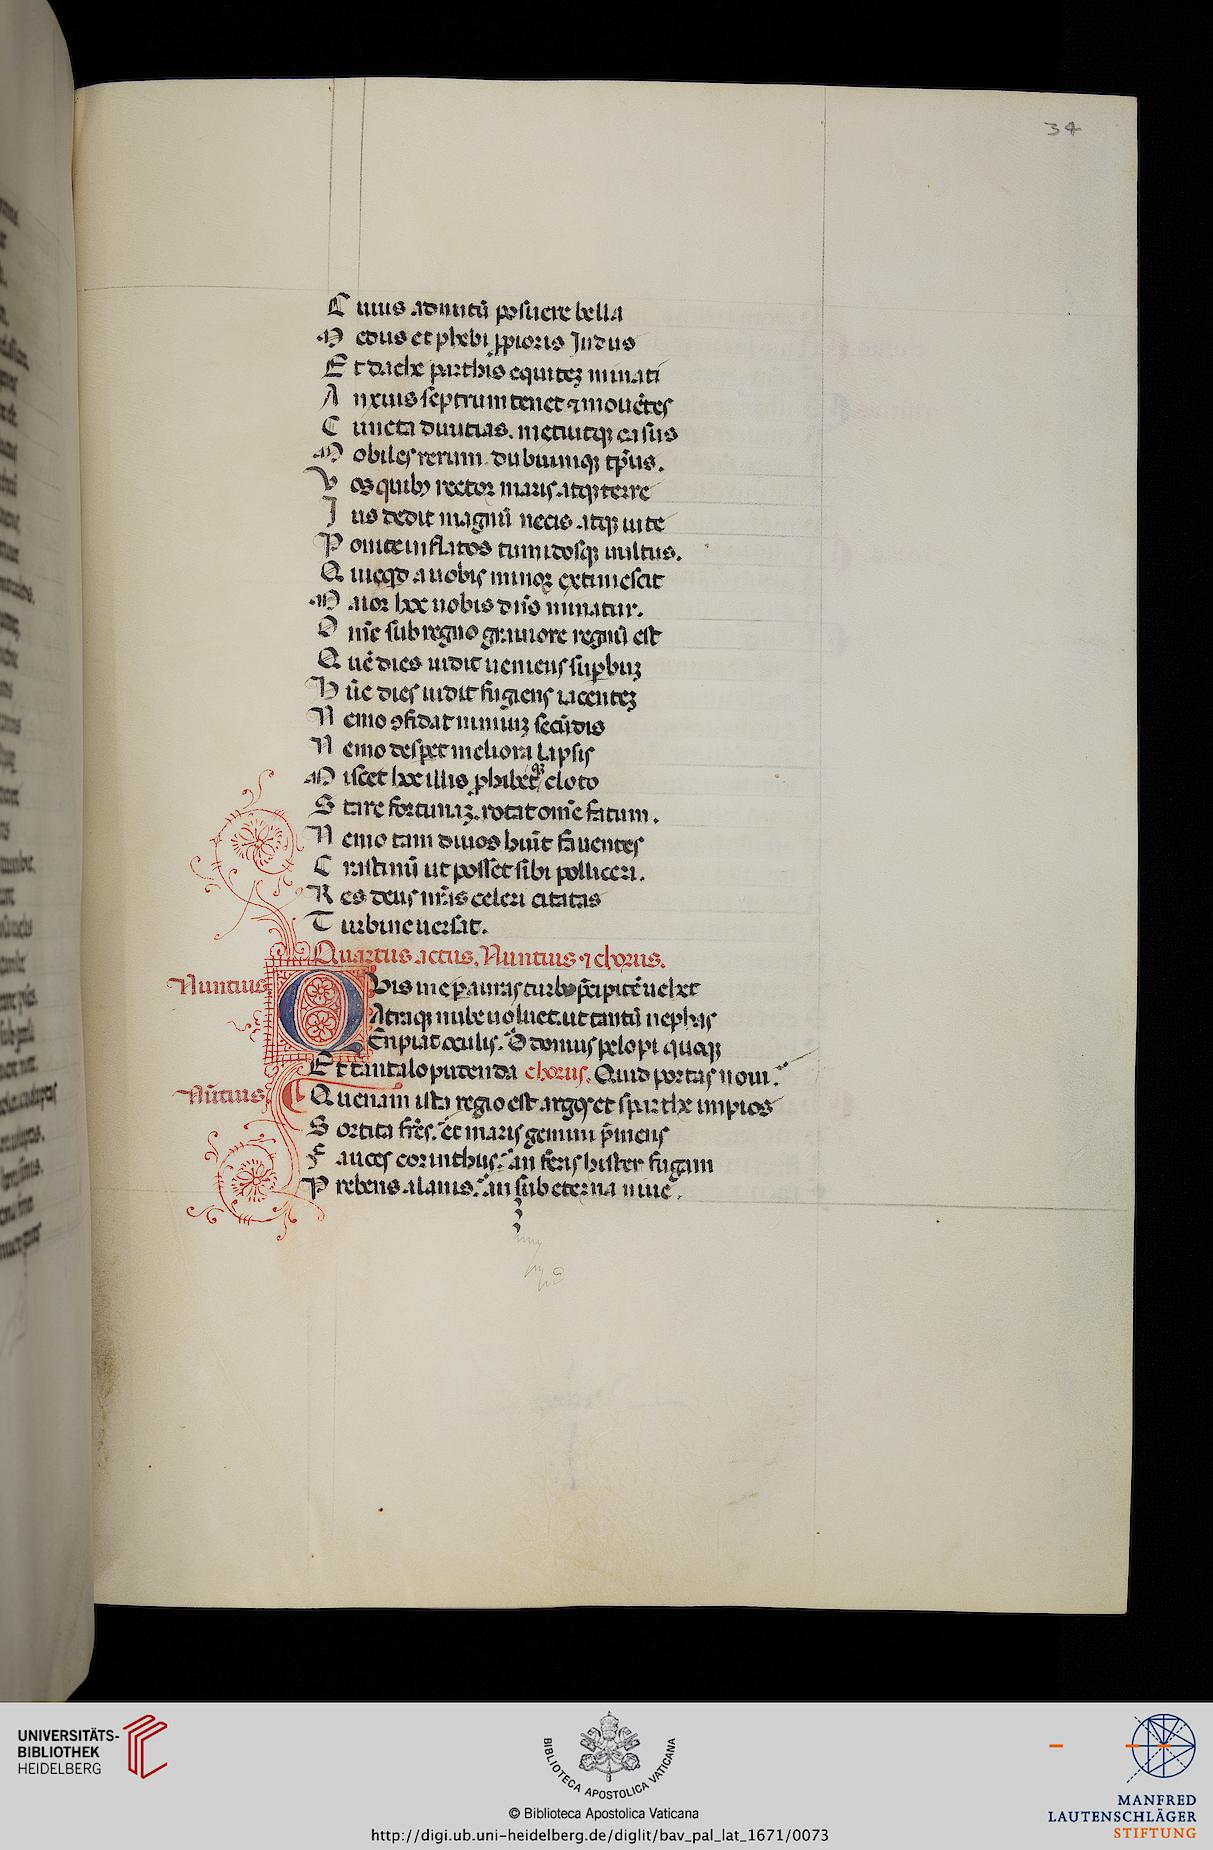 34
C uius ad nutū posuere bella
M edus et phebi ꝓpioris Indus
E t dache parthis equiteȝ minati
A nxius septrum tenet ⁊ mouētes
C uncta diuitias. metuitqȝ casus
M obiles rerum. dubiumqȝ tp̄us.
V os quibȝ rector maris atqȝ terre
I us dedit magnū necis atqȝ uite
P onite inflatos tumidosqȝ uultus.
Q uicqd a uobis minor extimescit
M aior hoc uobis dn̄s minatur.
O mē sub regno grauiore regnū est
Q uē dies uidit ueniens suꝑbuȝ
H ūc dies uidit fugiens iacenteȝ
N emo ꝯfidat nimiuȝ secūdis
N emo desꝑet meliora lapsis
M iscet hoc illis ꝓhibetqȝ cloto
S tare fortunaȝ. rotat omē fatum.
N emo tam diuos huīt fauentes
C rastinū ut posset sibi polliceri.
R es deus nr̄as celeri citatas
T urbine uersat.
Quartus actus. Nuntius ⁊ chorus.
Nuntius
Q Vis me ꝑ auras turbo p̄cipitē uehet
Atraqȝ nube uoluet. ut tantū nephas
Eripiat oculis. O domus pelopi quoqȝ
Et tantalo pudenda chorus. Quid portas noui.
Nūtius
Quenam ista regio est. argos et sparthe impios
S ortita fr̄es. et maris gemini p̄mens
F auces corinthus. an feris hister fugam
P rebens alanis. an sub eterna niue.
UNIVERSITÄTS-
BIBLIOTHEK
HEIDELBERG
BIBLIOTECA APOSTOLICA VATICANA
© Biblioteca Apostolica Vaticana
http://digi.ub.uni-heidelberg.de/diglit/bav_pal_lat_1671/0073
MANFRED
LAUTENSCHLÄGER
STIFTUNG